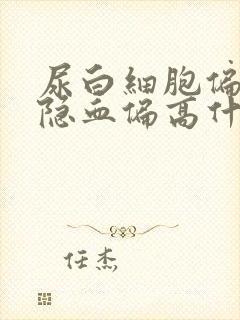 尿白细胞偏
隐血偏高什
任杰